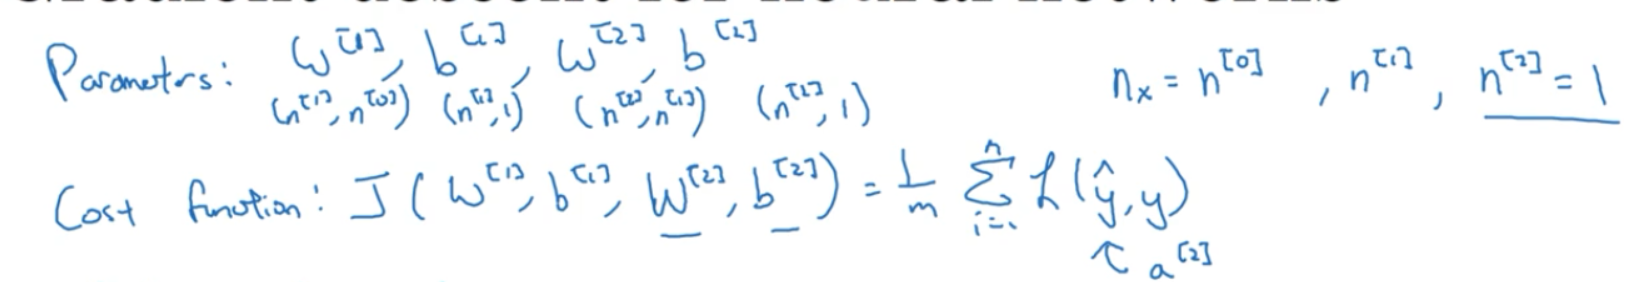 Parameters: W^[1], b^[1], W^[2], b^[2]    n_x = n^[0], n^[1], n^[2] = 1
(n^[1], n^[0]) (n^[1], 1) (n^[2], n^[1]) (n^[2], 1)
Cost function: J(W^[1], b^[1], W^[2], b^[2]) = 1/m ∑_{i=1}^n L(ŷ, y)
↑ a^[2]